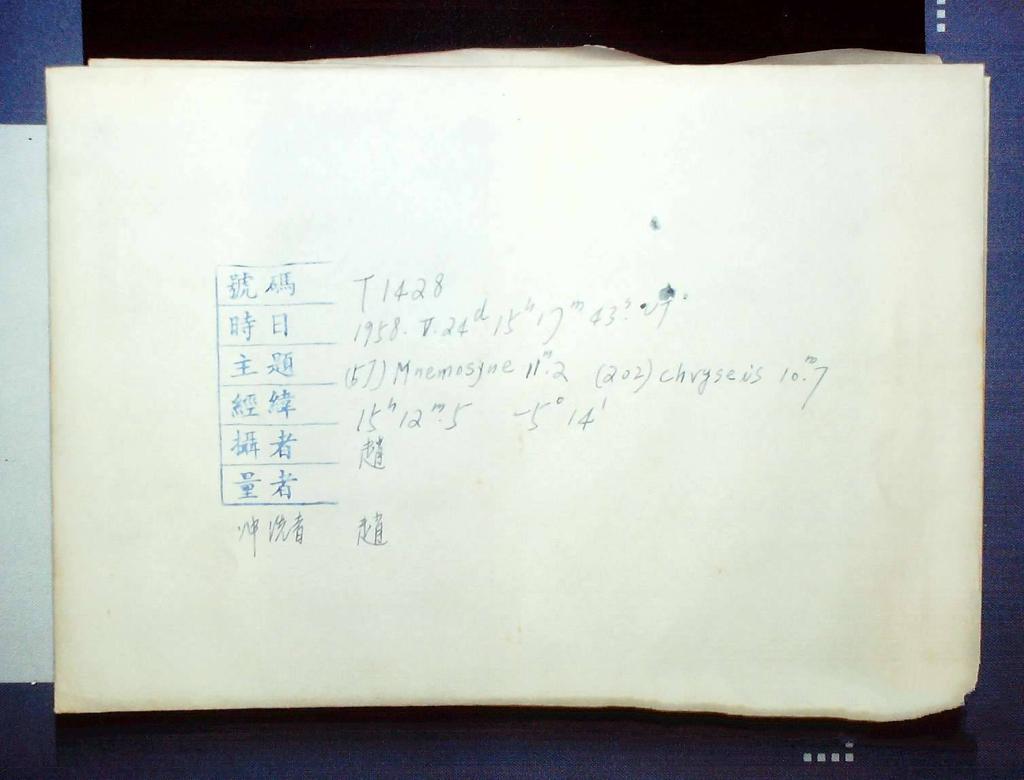 號碼 T1428
時日 1958. V. 24ᵈ 15ʰ 17ᵐ 43ˢ. UT.
主題 (57) Mnemosyne 11ᵐ.2 (202) chryseis 10.ᵐ7
經緯 15ʰ 12ᵐ.5 -5° 14'
攝者 趙
量者
冲洗者 趙